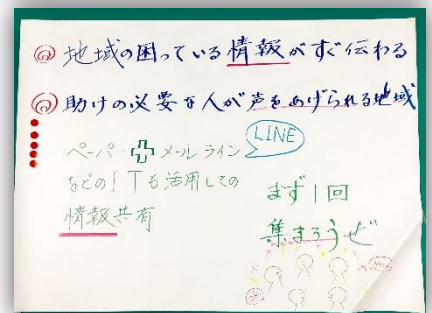 ◎ 地域の困っている情報がすぐ伝わる
◎ 助けの必要な人が声をあげられる地域
ペーパー+メールライン
LINE
などのITも活用しての
情報共有
まず1回
集まろうぜ